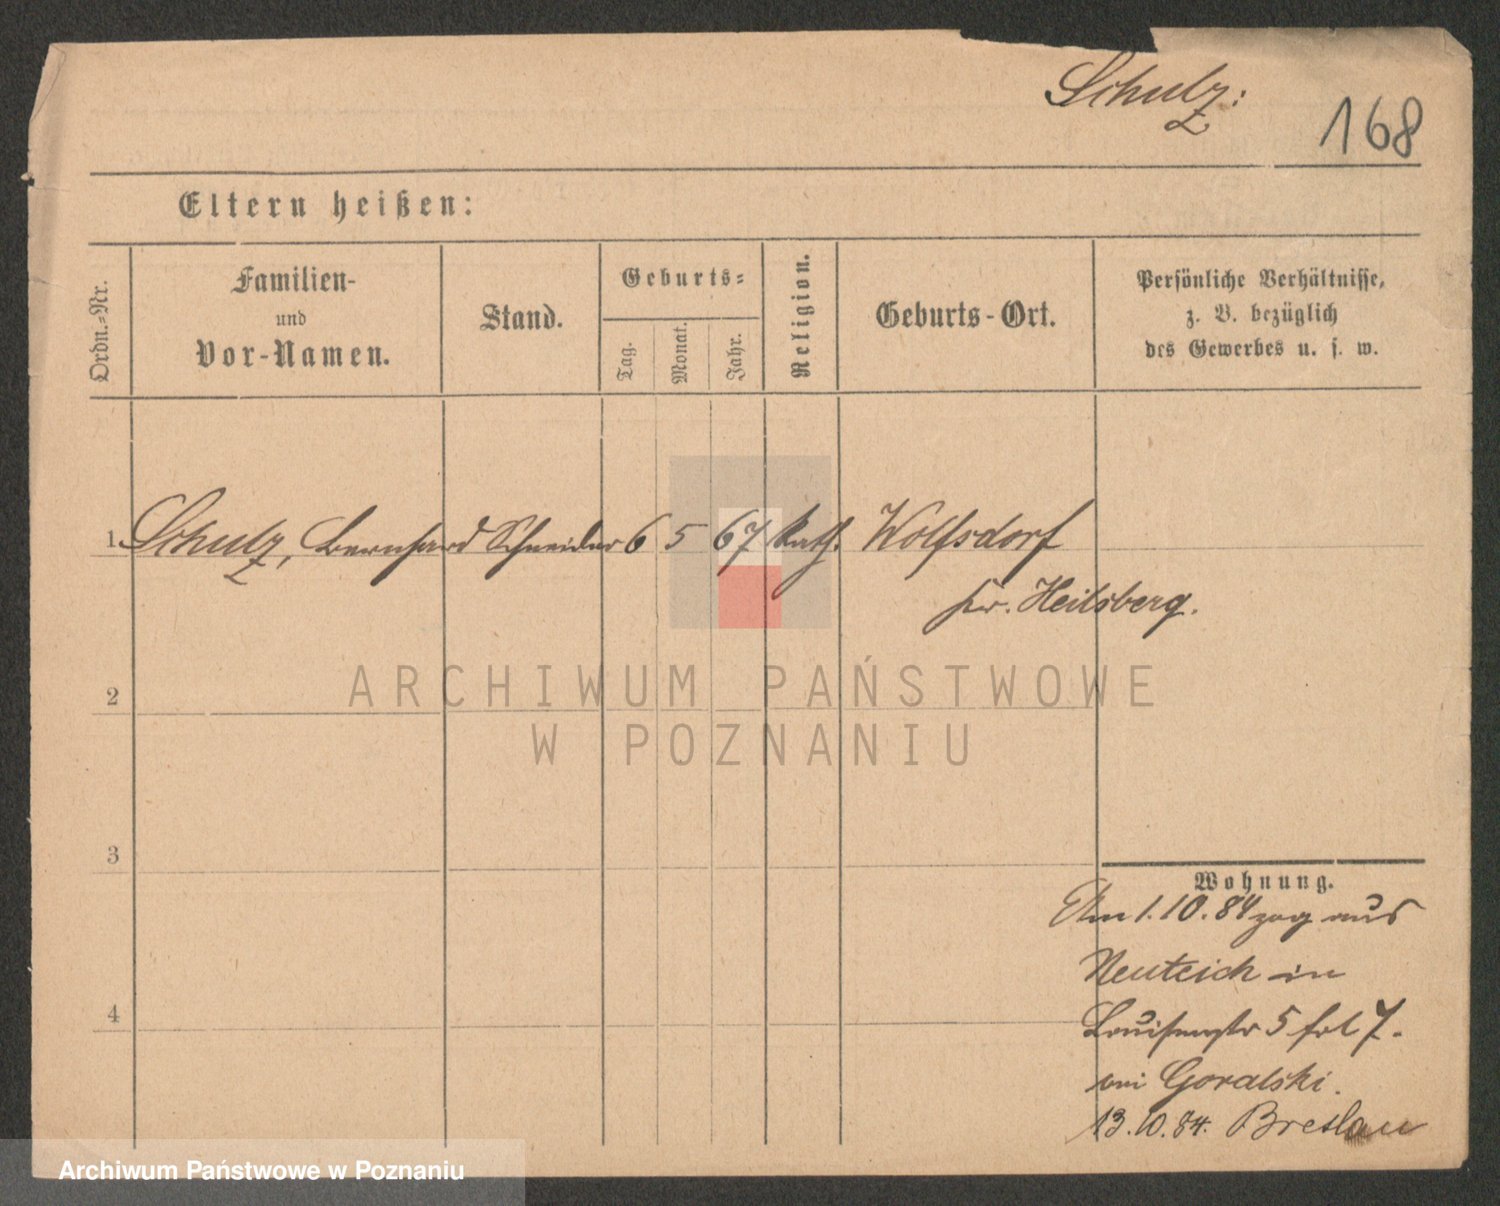 Schulz:
168
Eltern heißen:
Ordn.-Nr.
Familien-
und
Vor-Namen.
Stand.
Geburts-
Tag.
Monat.
Jahr.
Religion.
Geburts-Ort.
Persönliche Verhältnisse,
z. B. bezüglich
des Gewerbes u. s. w.
1 Schulz, Bernhard Schneider 6 5 67 kath. Wolfsdorf
Kr. Heilsberg.
2
3
4
Wohnung.
Am 1.10.84 zog aus
Neuteich in
Louisenstr 5 fol 7.
bei Goralski.
13.10.84. Breslau
ARCHIWUM PAŃSTWOWE
W POZNANIU
Archiwum Państwowe w Poznaniu